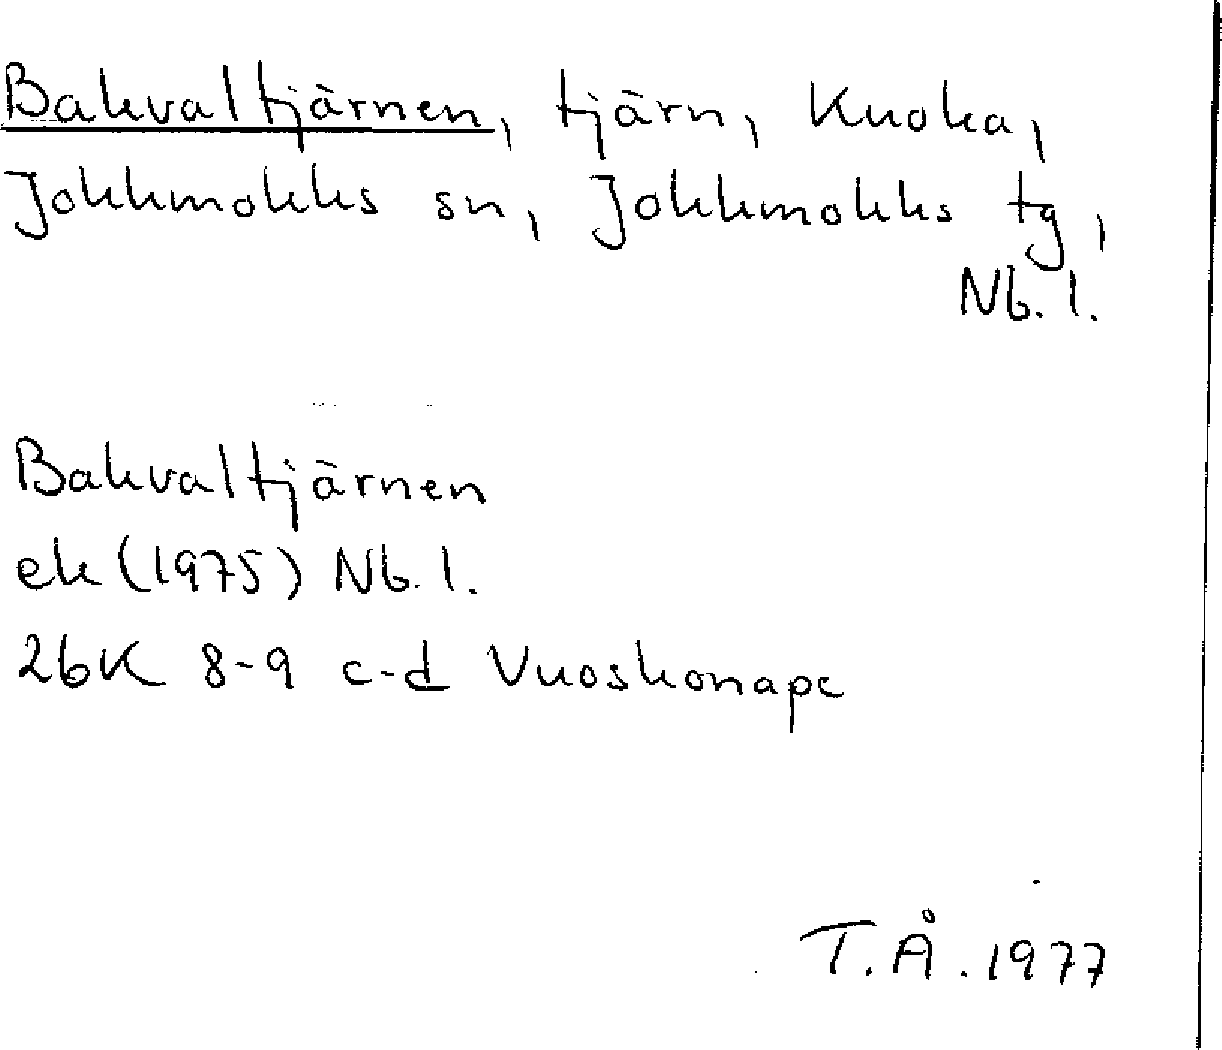 Bakvaltjärnen, tjärn, Kuoka,
Jokkmokks sn, Jokkmokks tg,
Nb. l.
Bakvaltjärnen
ek (1975) Nb. l.
26K 8-9 c-d Vuoskonape
T.Å. 1977